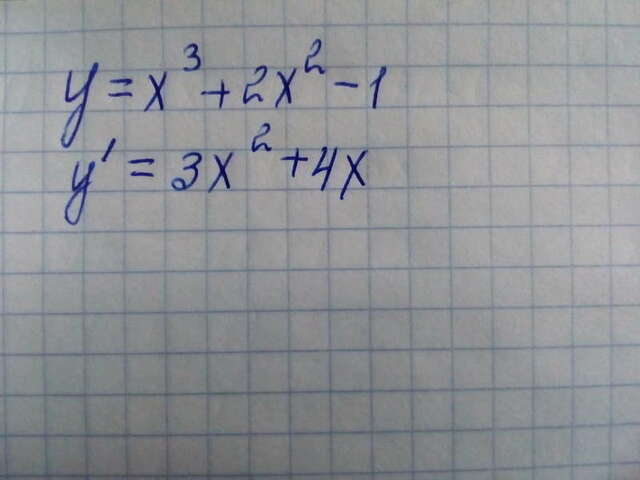 y = x³ + 2x² - 1
y' = 3x² + 4x